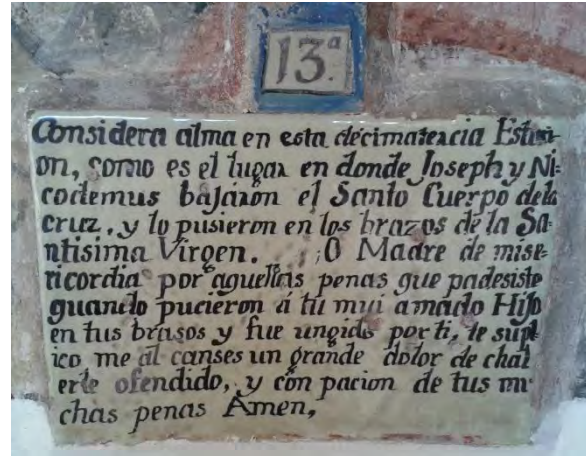 13.ª
Considera alma en esta decimatercia Estaci-
on, como es el lugar en donde Joseph y Ni-
codemus bajaron el Santo Cuerpo dela
cruz, y lo pusieron en los brazos de la Sa-
ntisima Virgen. ¡O Madre de mise-
ricordia por aquellas penas que padesiste
quando pucieron á tu mui amado Hijo
en tus brasos y fue ungido por ti, te supl-
ico me al canses un grande dolor de
erle ofendido, y con pacion de tus mu-
chas penas Amen,